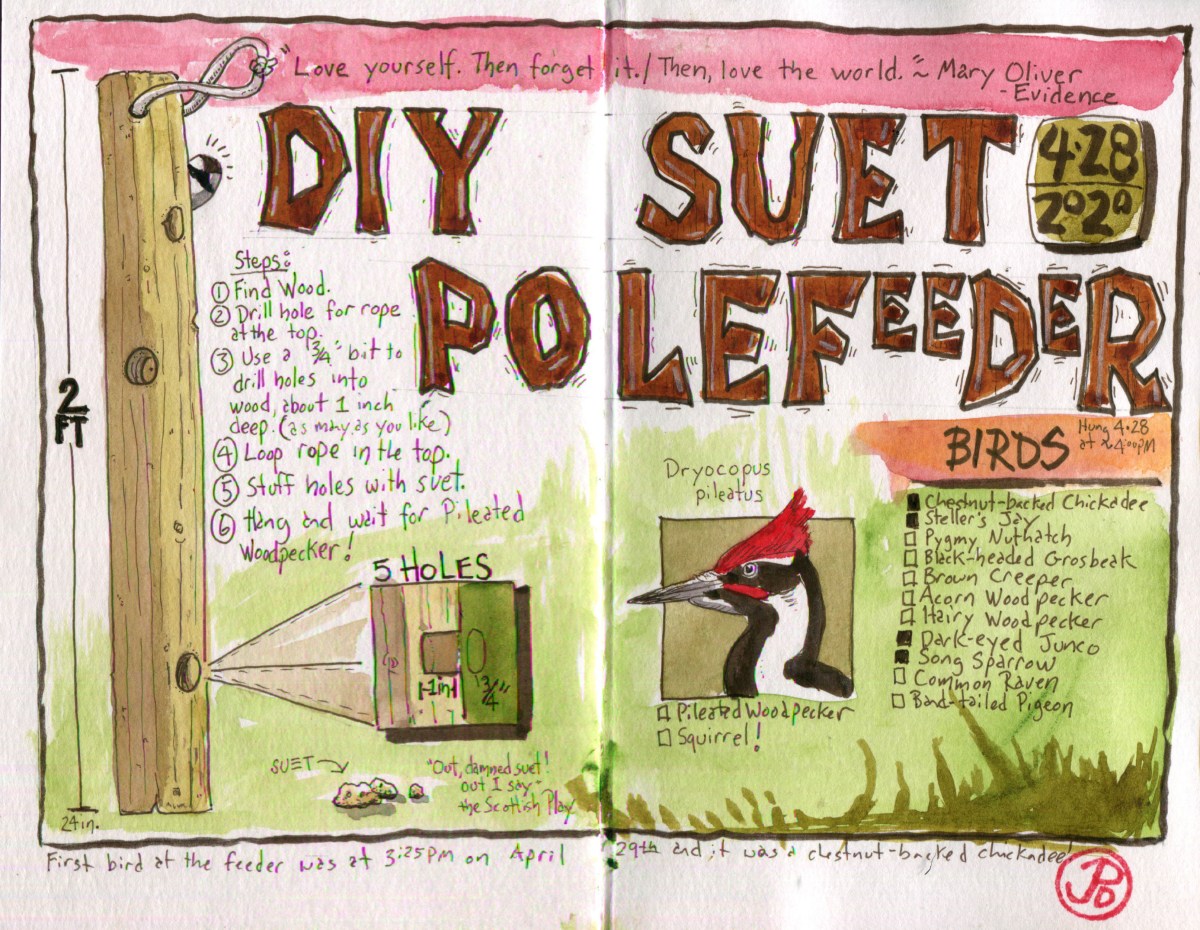 "Love yourself. Then forget it./Then, love the world." ~ Mary Oliver
- Evidence
DIY SUET
POLEFEEDER
4.28
2020
2
FT
24in.
Steps:
① Find Wood.
② Drill hole for rope
at the top.
③ Use a 3/4" bit to
drill holes into
wood, about 1 inch
deep. (as may as you like)
④ Loop rope in the top.
⑤ Stuff holes with suet.
⑥ Hang and wait for Pileated
Woodpecker!
5 HOLES
1in
3/4"
SUET →
"Out, damned suet!
out I say"
the Scottish Play
Dryocopus
pileatus
□ Pileated Woodpecker
□ Squirrel!
BIRDS
Hung 4.28
at ≈ 4:00PM
■ Chestnut-backed Chickadee
■ Steller's Jay
□ Pygmy Nuthatch
□ Black-headed Grosbeak
□ Brown Creeper
□ Acorn Woodpecker
□ Hairy Woodpecker
■ Dark-eyed Junco
■ Song Sparrow
□ Common Raven
□ Band-tailed Pigeon
First bird at the feeder was at 3:25PM on April 29th and it was a chestnut-backed chickadee!